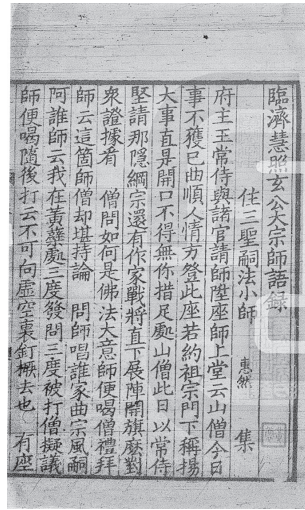 臨濟慧照玄公大宗師語録
住三聖嗣法小師 惠然 集
府主王常侍與諸官請師陞座師上堂云山僧今日
事不獲已曲順人情方登此座若約祖宗門下稱揚
大事直是開口不得無你措足處山僧此日以常侍
堅請那隱綱宗還有作家戰將直下展陣開旗麽對
衆證據看 僧問如何是佛法大意師便喝僧禮拜
師云這箇師僧却堪持論 問師唱誰家曲宗風嗣
阿誰師云我在黃蘗處三度發問三度被打僧擬議
師便喝隨後打云不可向虚空裏釘橛去也 有座